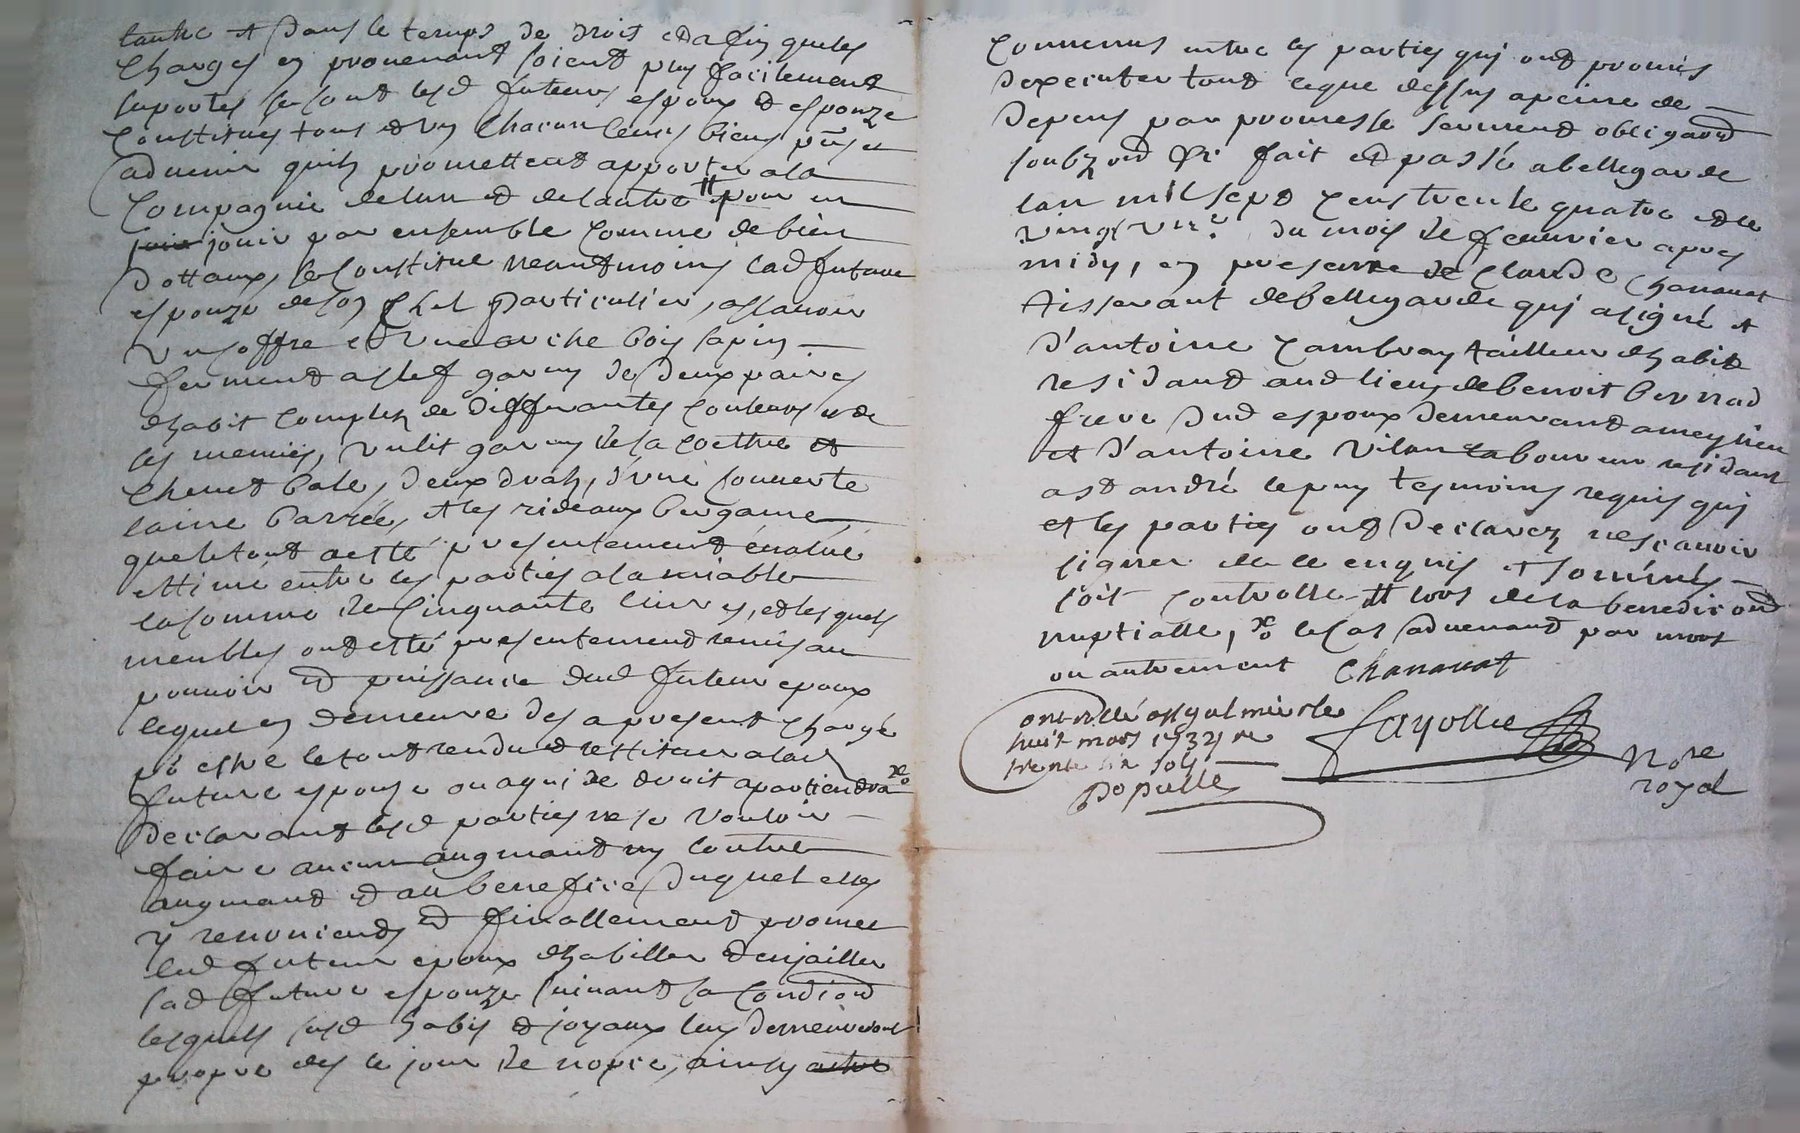 lautre et dans le temps de droit et afin que les
charges en provenant soient plus facilement
suportes se sont lesd futeurs espoux et espouze
constitues tous et un chacun leurs biens pñs et
advenir quils promettent apporter a la
compagnie de lun et de lautre # pour en
jouir par ensemble comme de bien
dottaux, se constitue neantmoins lad future
espouze de son chef particulier, assavoir
un coffre et une arche bois sapin
ferment a clef garny de deux paires
dhabit complez de differantes couleurs et de
ses menus, un lit garny de sa coettre et
chevet bale, deux drah, d'une couverte
laine barrée, et les rideaux bergame,
que le tout a esté presentement évalué
estimé entre les parties a la miable
la somme de cinquante livres, et lesquels
meubles ont esté presentement remis au
pouvoir et puissance dud futeur epoux
lequel en demeure des a present chargé
pr estre le tout rendu et restituer a lad
future espouze ou a qui de droit apartiendra xo
declarant lesd parties ne se vouloir
faire aucun augmant ny contre
augmand et au benefice duquel elles
y renoncends et finallement promet
led futeur epoux dhabiller et enjailler
lad future espouze suivant sa condiond
lesquels susd habis et joyaux luy demeureront
propre des le jour de nopce, ainsy
convenus entre les parties quj ont promis
dexecuter tout ceque dessus apeine de
depens par promesse serment obligaond
soubz ond &c fait et passé a bellegarde
lan mil sept cens trente quatre et le
vingt un.e du mois de fevrier apres
midy, en presence de Claude Chananat
tisserant de bellegarde quj a signé et
d'antoine Cambray tailleur dhabits
residant aud lieu, de benoit bernad
frere dud espoux demeurant a meylieu
et d'antoine vilan laboureur residant
a st andré le puy tesmoins requis quj
et les parties ont declarez ne scavoir
signer de ce enquis et sommés
soit controlle # lors de la benediction
nuptialle, xo le cas advenant par mort
ou autrement Chananat
Controllé a st galmier le
huit mars 1734 re
trente six sols
Populle
fayolle
Nore
royal